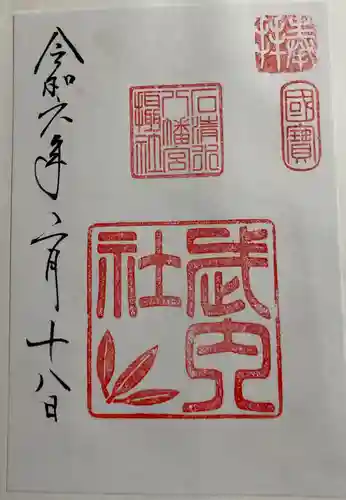 奉拝
國寶
石清水
八幡宮
摂社
武内
社
令和六年二月十八日